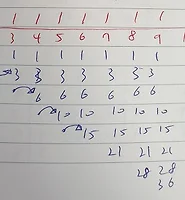 1 1 1 1 1 1 1
3 4 5 6 7 8 9
1 1 1 1 1 1 1
3 3 3 3 3 3 3
6 6 6 6 6 6
10 10 10 10 10
15 15 15 15
21 21 21
28 28
36